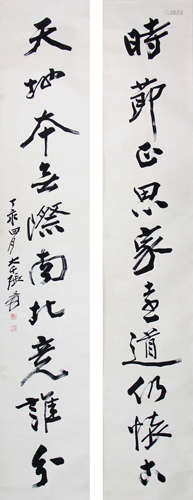 時節正思家遠道仍懷古
天地本無際南北竟誰分
丁亥四月大千張爰